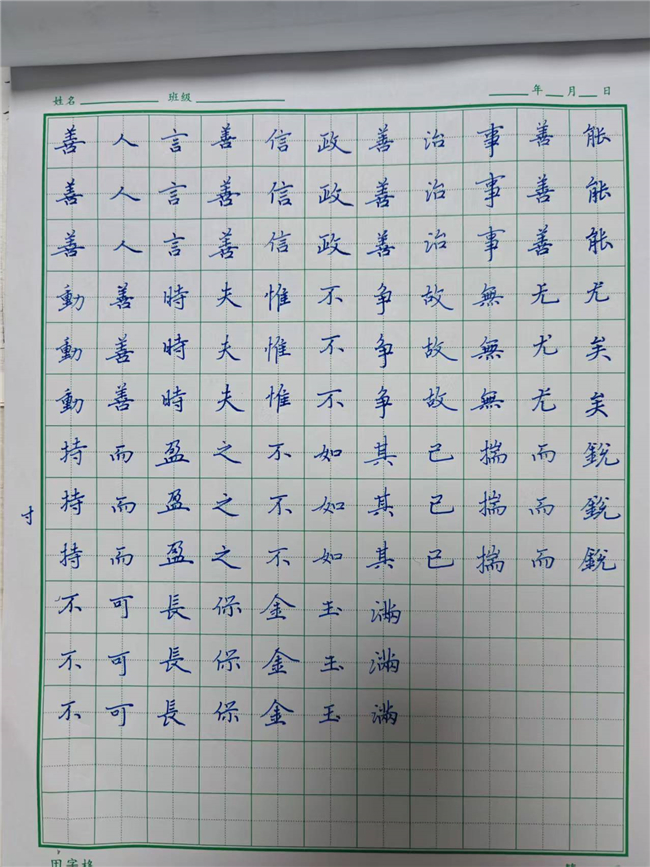 姓名 班级 年 月 日
善人言善信政善治事善能
善人言善信政善治事善能
善人言善信政善治事善能
動善時夫惟不争故無尤尤
動善時夫惟不争故無尤矣
動善時夫惟不争故無尤矣
持而盈之不如其已揣而銳
持而盈之不如其已揣而銳
寸
持而盈之不如其已揣而銳
不可長保金玉滿
不可長保金玉滿
不可長保金玉滿
田字格